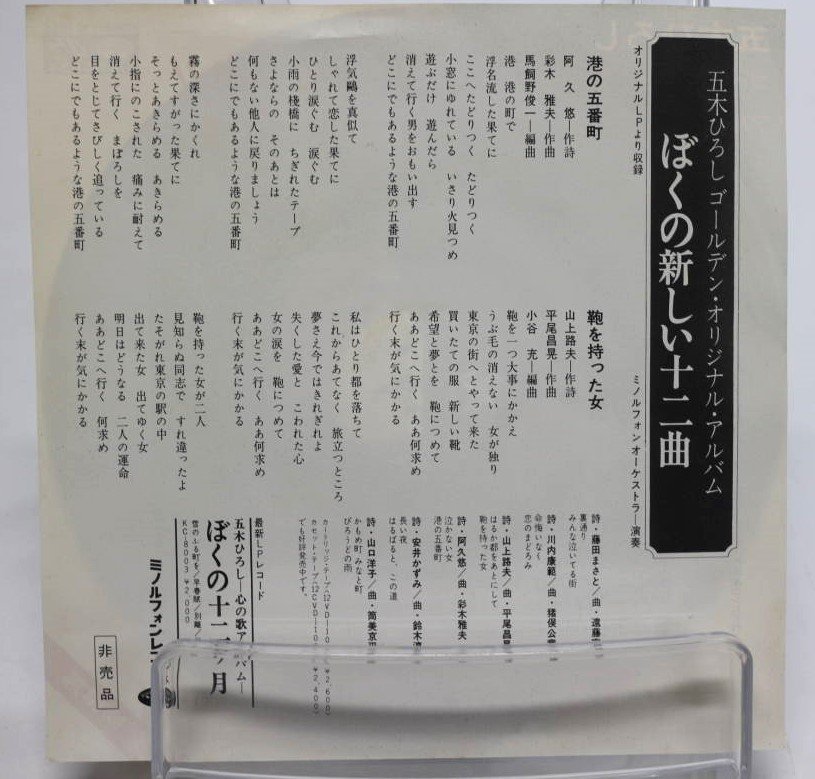 五木ひろし ゴールデン・オリジナル・アルバム
ぼくの新しい十二曲
ミノルフォンオーケストラ—演奏
オリジナルLPより収録
港の五番町
阿久悠—作詩
彩木雅夫—作曲
馬飼野俊一—編曲
港 港の町で
浮名流した果てに
ここへたどりつく たどりつく
小窓にゆれている いさり火見つめ
遊ぶだけ 遊んだら
消えて行く男をおもい出す
どこにでもあるような港の五番町
浮気鷗を真似て
しゃれて恋した果てに
ひとり涙ぐむ 涙ぐむ
小雨の棧橋に ちぎれたテープ
さよならの そのあとは
何もない他人に戻りましょう
どこにでもあるような港の五番町
霧の深さにかくれ
もえてすがった果てに
そっとあきらめる あきらめる
小指にのこされた 痛みに耐えて
消えて行く まぼろしを
目をとじてさびしく追っている
どこにでもあるような港の五番町
鞄を持った女
山上路夫—作詩
平尾昌晃—作曲
小谷 充—編曲
鞄を一つ大事にかかえ
うぶ毛の消えない 女が独り
東京の街へとやって来た
買いたての服 新しい靴
希望と夢とを 鞄につめて
ああどこへ行く ああ何求め
行く末が気にかかる
私はひとり都を落ちて
これからあてなく 旅立つところ
夢さえ今ではきれぎれよ
失くした愛と こわれた心
女の涙を 鞄につめて
ああどこへ行く ああ何求め
行く末が気にかかる
鞄を持った女が二人
見知らぬ同志で すれ違ったよ
たそがれ東京の駅の中
出て来た女 出てゆく女
明日はどうなる 二人の運命
ああどこへ行く 何求め
行く末が気にかかる
詩・藤田まさと/曲・遠藤
裏通り
みんな泣いてる街
詩・川内康範/曲・猪俣公章
命悔いなく
恋のまどろみ
詩・山上路夫/曲・平尾昌晃
はるか都をあとにして
鞄を持った女
詩・阿久悠/曲・彩木雅夫
泣かない女
港の五番町
詩・安井かずみ/曲・鈴木
長い夜
はるばると、この道
詩・山口洋子/曲・筒美京平
かもめ町 みなと町
びろうどの雨
カートリッジ・テープ(12VD-110 ¥2,600)
カセット・テープ(12CVD-110 ¥2,400)
でも好評発売中です。
最新LPレコード
五木ひろし—心の歌アルバム—
ぼくの十二ヶ月
雪のふる町を/早春賦/別離/
KC-8003 ¥2,000
ミノルフォンレ
非売品